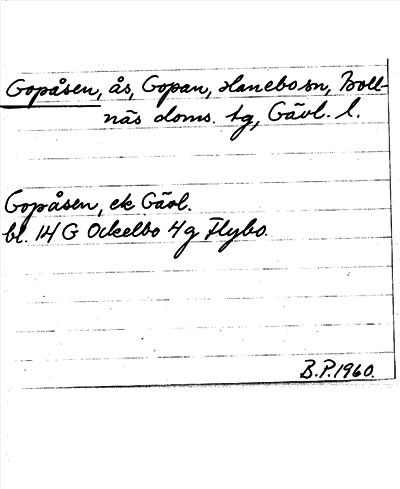 Gopåsen, ås, Gopan, Hanebo sn, Boll-
näs doms. tg, Gävl. l.
Gopåsen, ek Gävl.
bl. 14 G Ockelbo 4 g Flybo.
B.P. 1960.